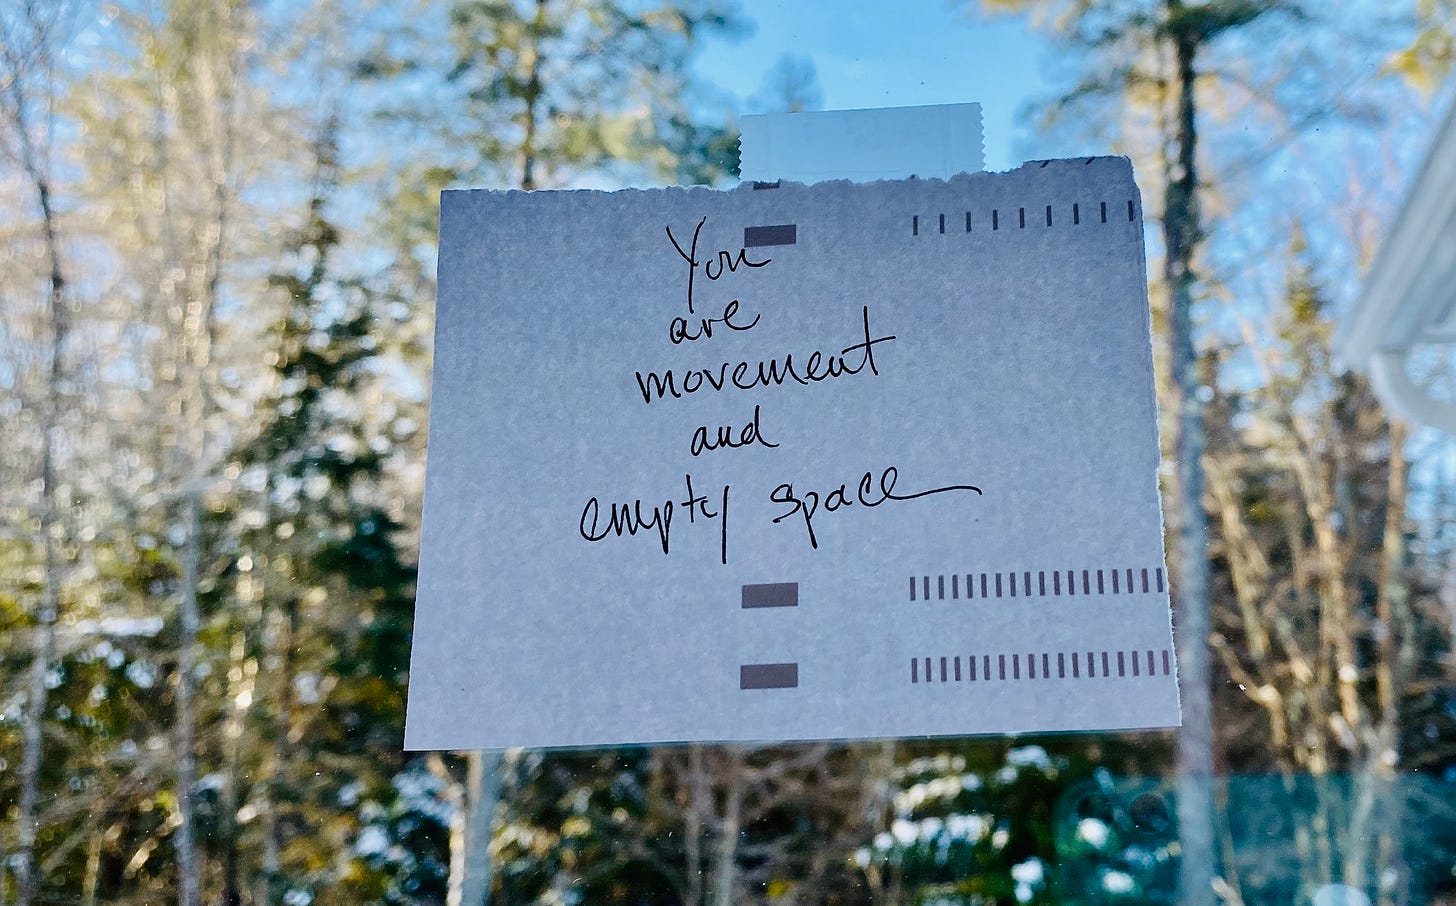 You
are
movement
and
empty space